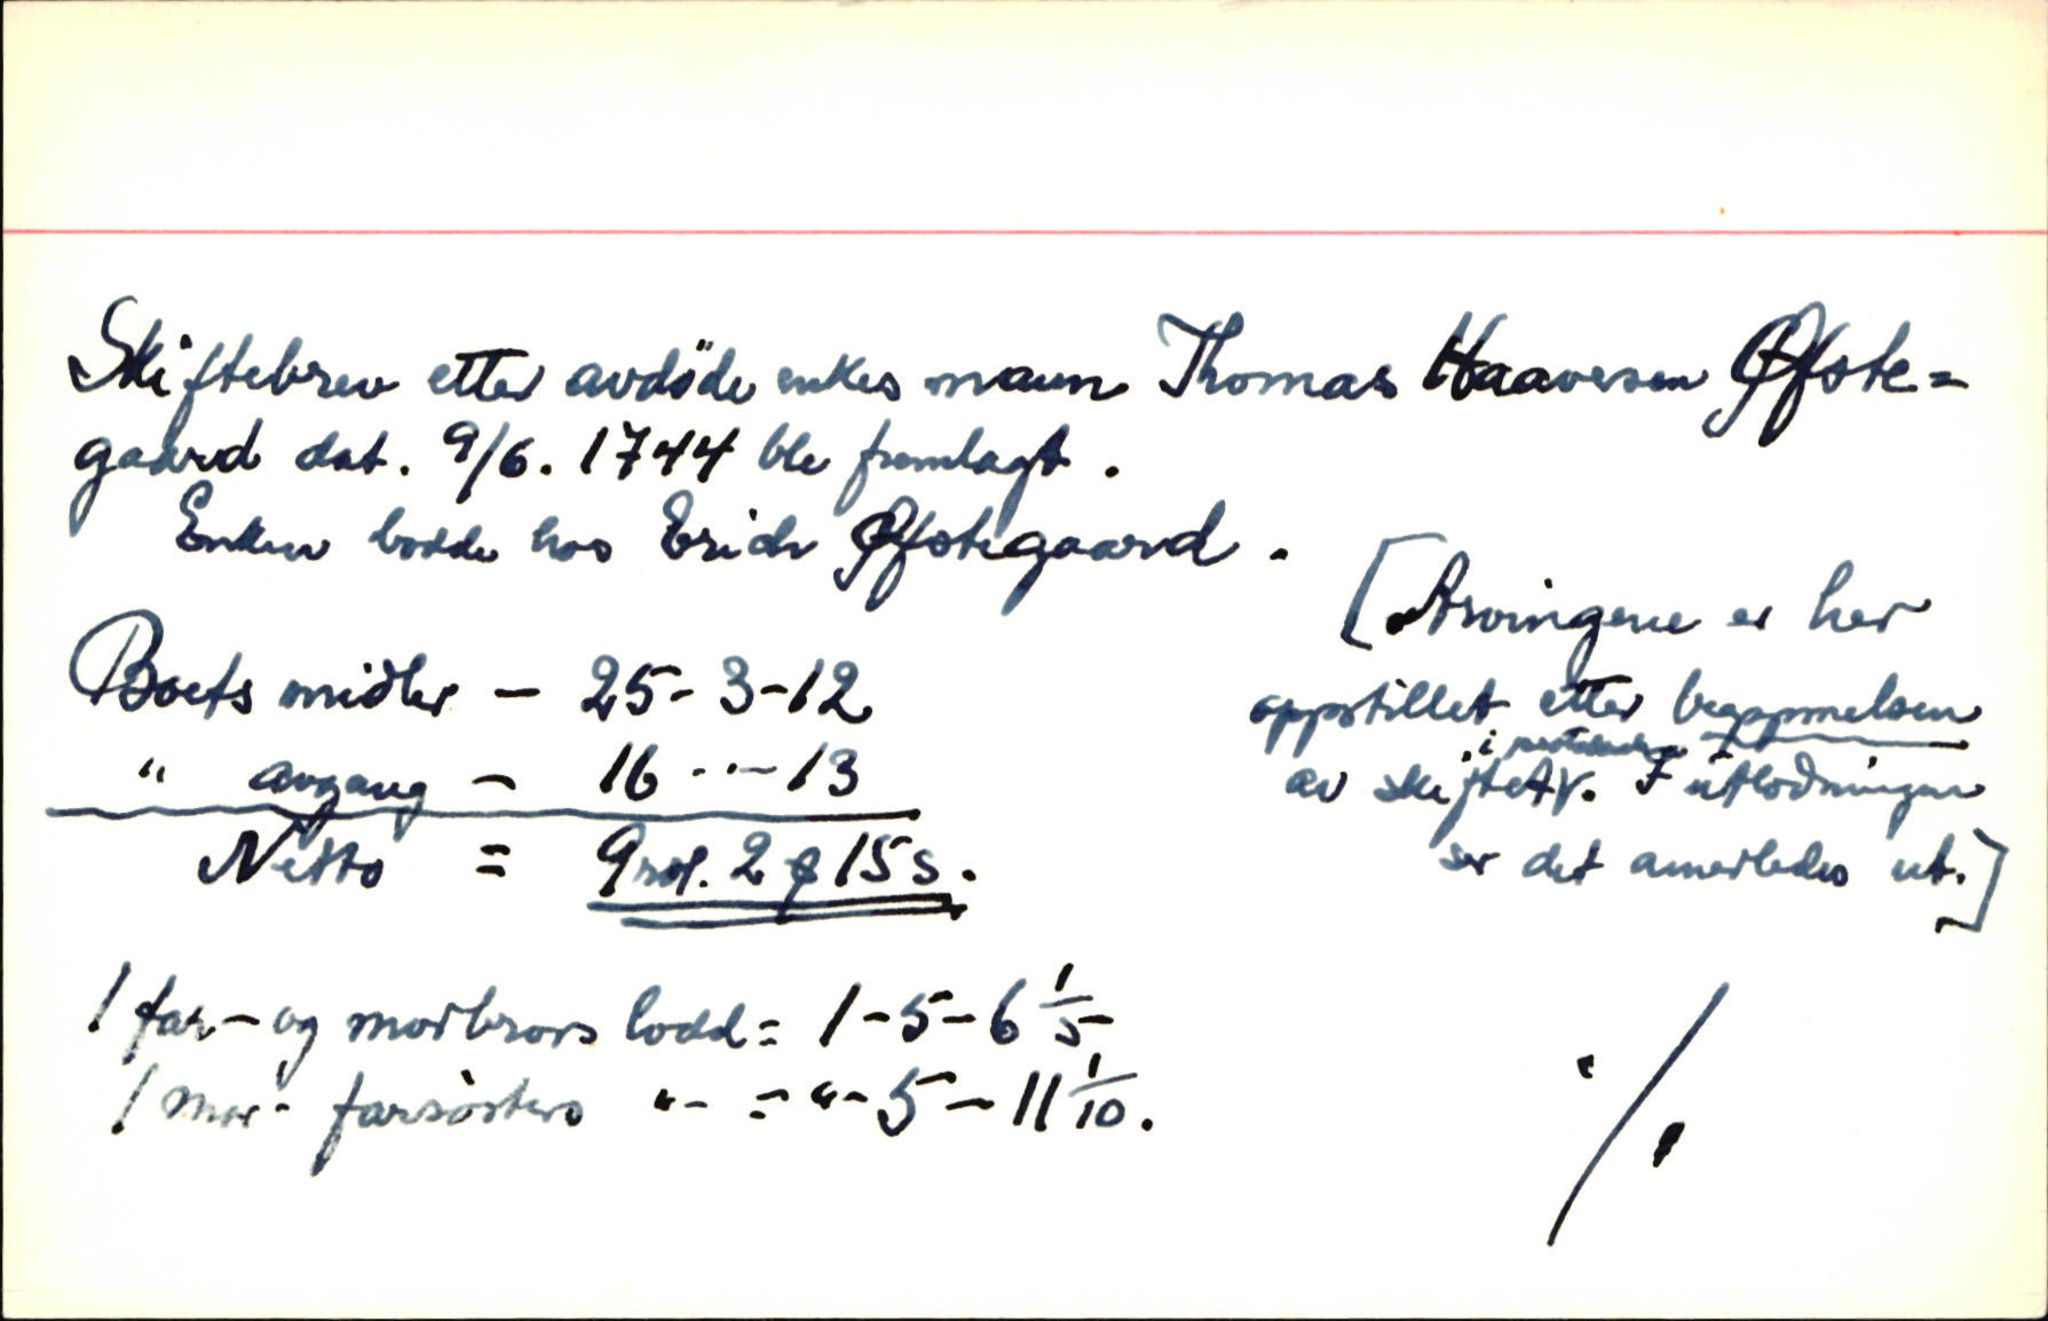 Skiftebrev etter avdøde enkes mann Thomas Haaversen Øfste=
gaard dat. 9/6. 1744 ble fremlagt.
Enken bodde hos Erich Øfstegaard.
Boets midler - 25-3-12
" avgang - 16 ... - 13
Netto = 9 rdl. 2 ₰ 15 s.
[Arvingene er her
oppstillet etter begynnelsen
i protokollen
av skiftet. I utlodningen
ser det anerledes ut.]
1 far- og morbrors lodd = 1-5-6 1/5
1 mor- farsösters "- = "-5-11 1/10.
·/.